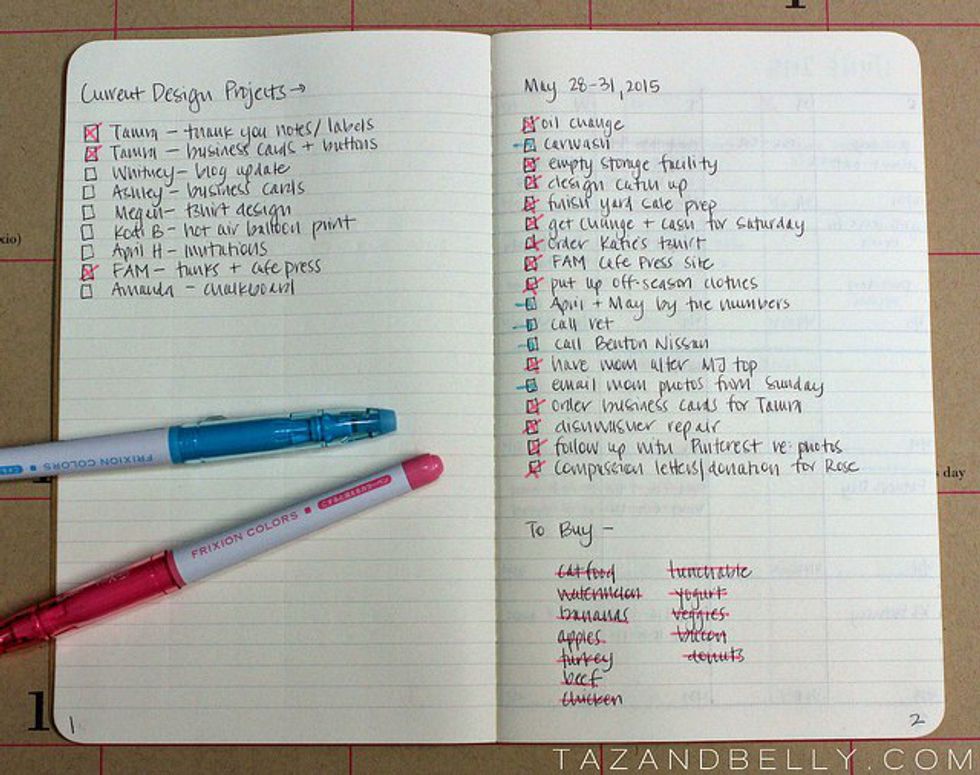 Current Design Projects →
Tamra – thank you notes/labels
Tamra – business cards + buttons
Whitney – blog update
Ashley – business cards
Megan – tshirt design
Kodi B – hot air balloon print
April H – invitations
FAM – tanks + cafe press
Amanda – chalkboard
1
May 28-31, 2015
oil change
carwash
empty storage facility
design catch up
finish yard sale prep
get change + cash for Saturday
order Katie's tshirt
FAM Cafe Press site
put up off-season clothes
April + May by the numbers
call vet
call Benton Nissan
have mom alter MJ top
email mom photos from Sunday
order business cards for Tamra
dishwasher repair
follow up with Pinterest re: photos
compassion letters/donation for Rose
To Buy –
cat food
watermelon
bananas
apples
turkey
beef
chicken
lunchable
yogurt
veggies
bacon
donuts
2
FRIXION COLORS
FRIXION COLORS
xio)
s day
1
TAZANDBELLY.COM